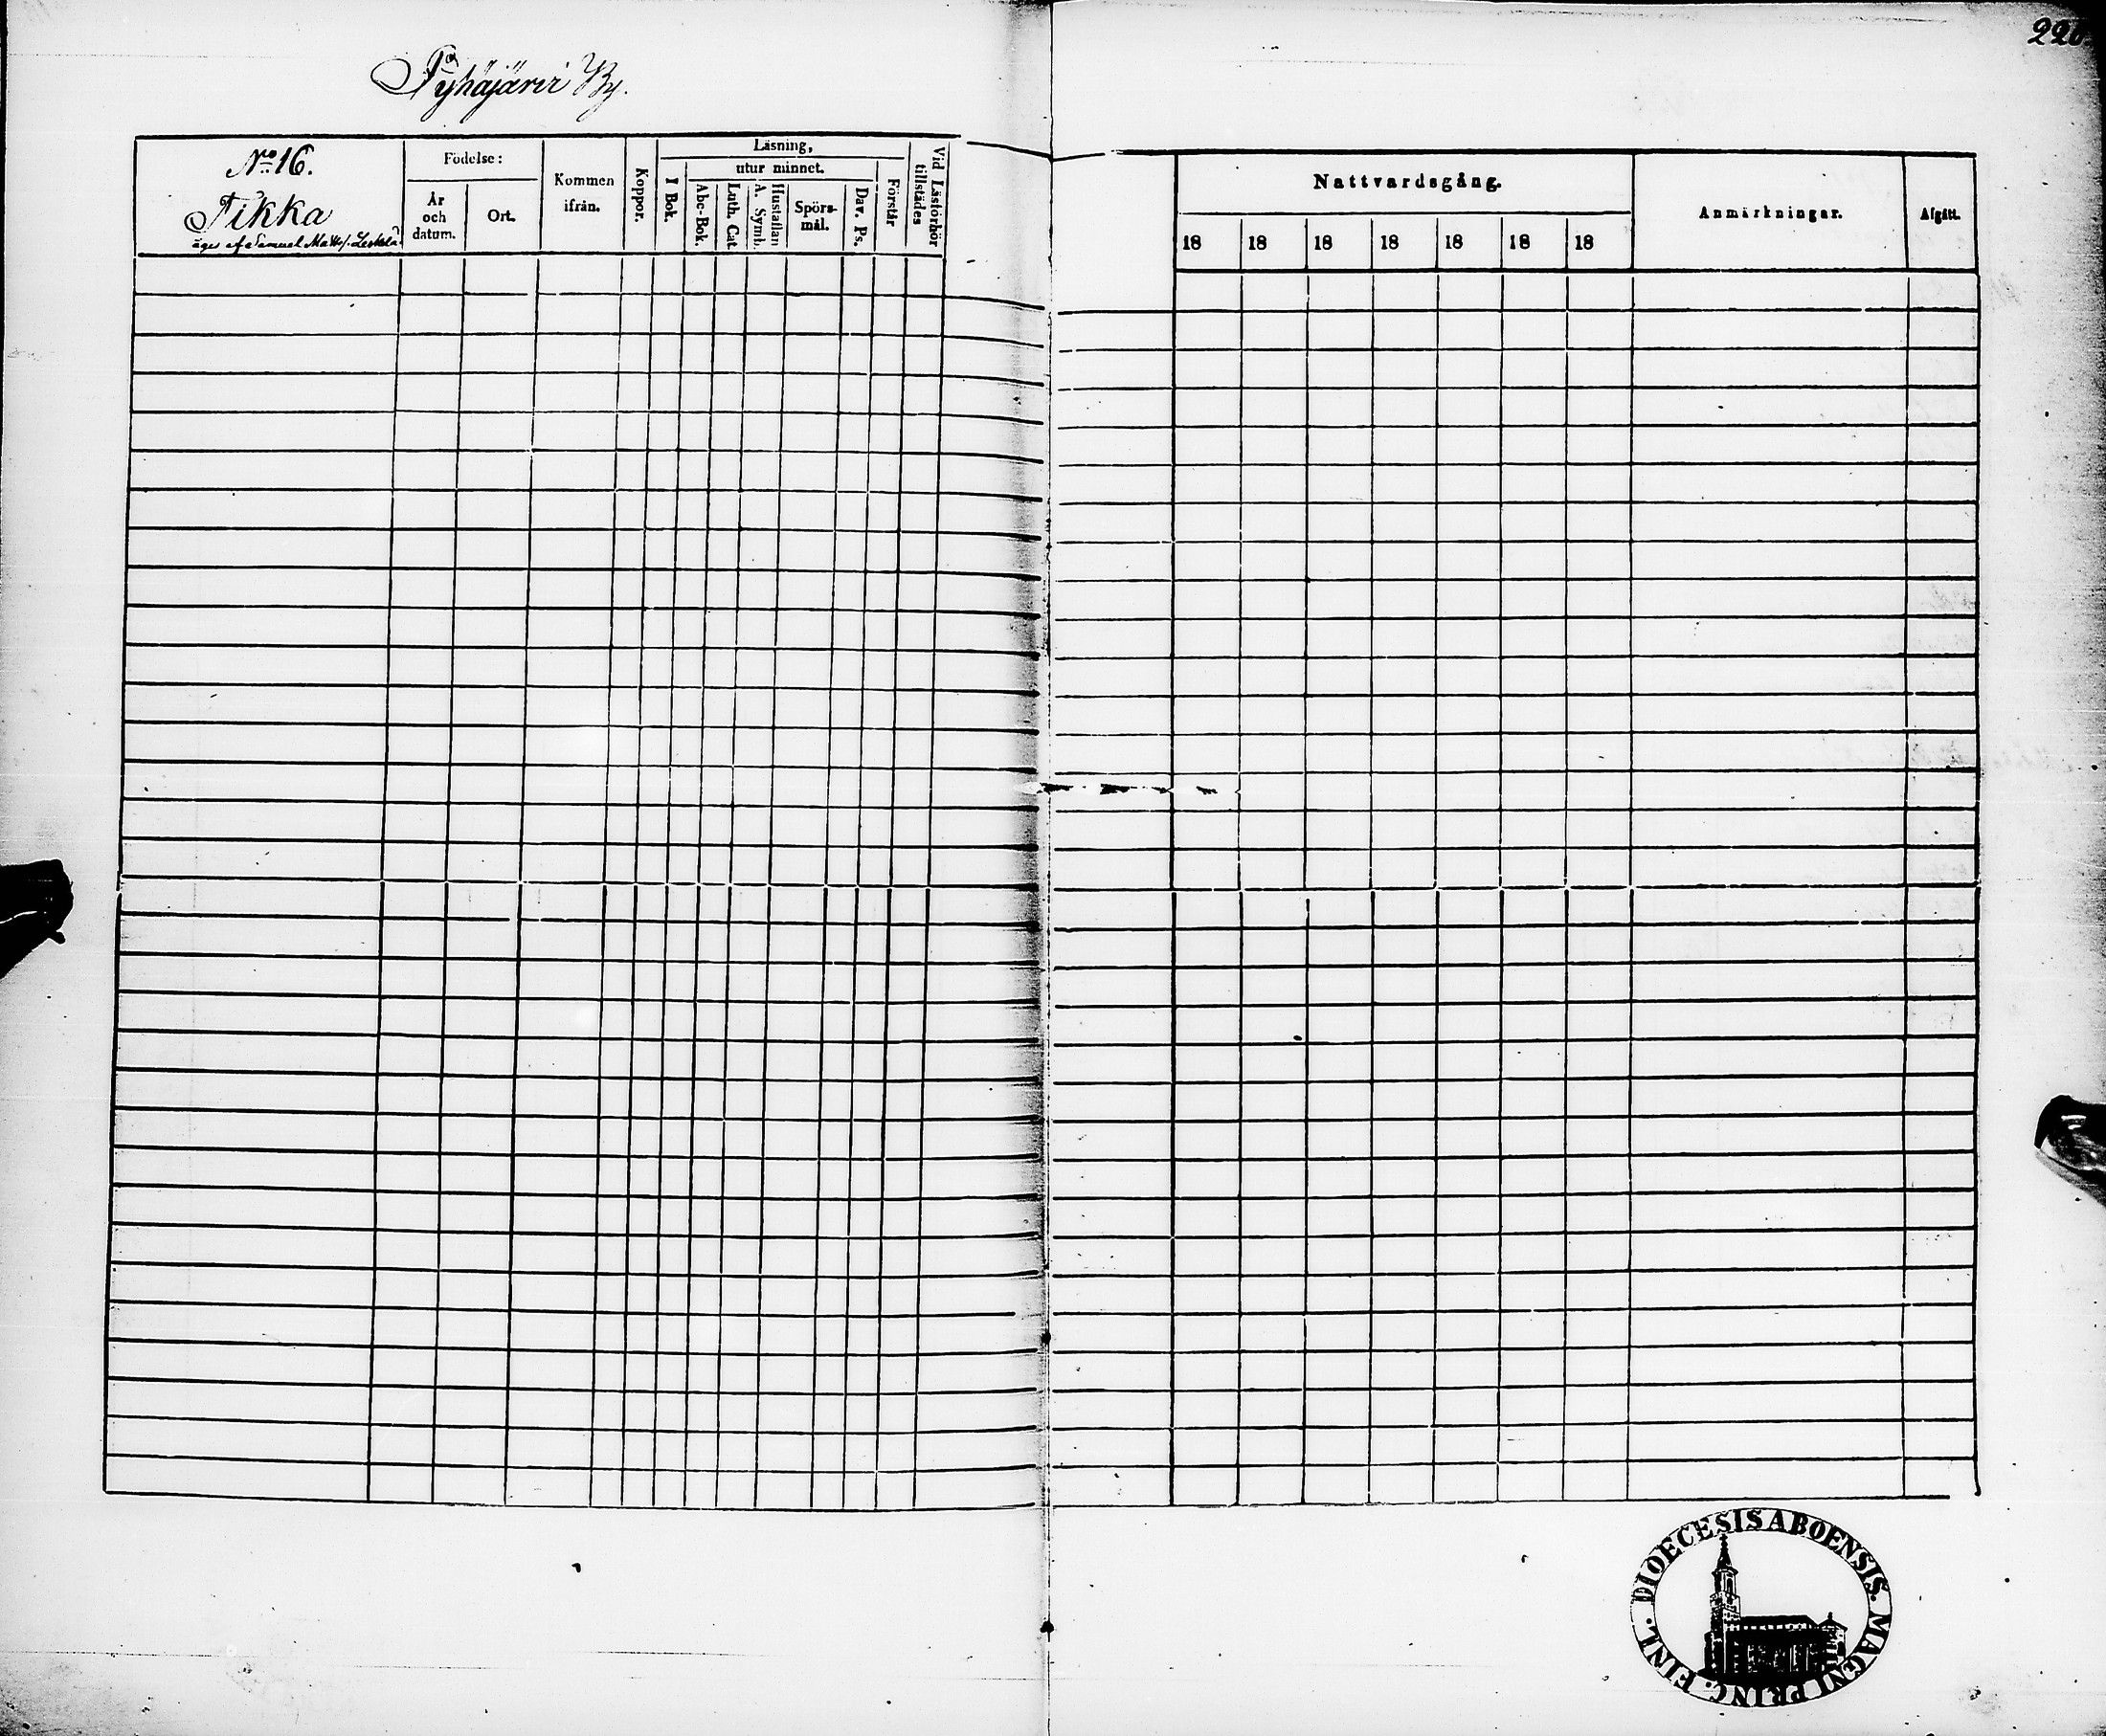 220
Pyhäjärvi By.
No 16.
äges af Samuel Matts.
Födelse:
År och datum.
Ort.
Kommen ifrån.
Koppor.
Läsning,
utur minnet.
I Bok.
Abc-Bok.
Luth. Cat.
Hustaflan A. Symb.
Spörs-mål.
Dav. Ps.
Förstår
Vid Läsförhör tillstädes
Nattvardsgång.
18 18 18 18 18 18 18
Anmärkningar.
Afgått.
DIOECESIS ABOENSIS. MAGNI PRINC. FINL.